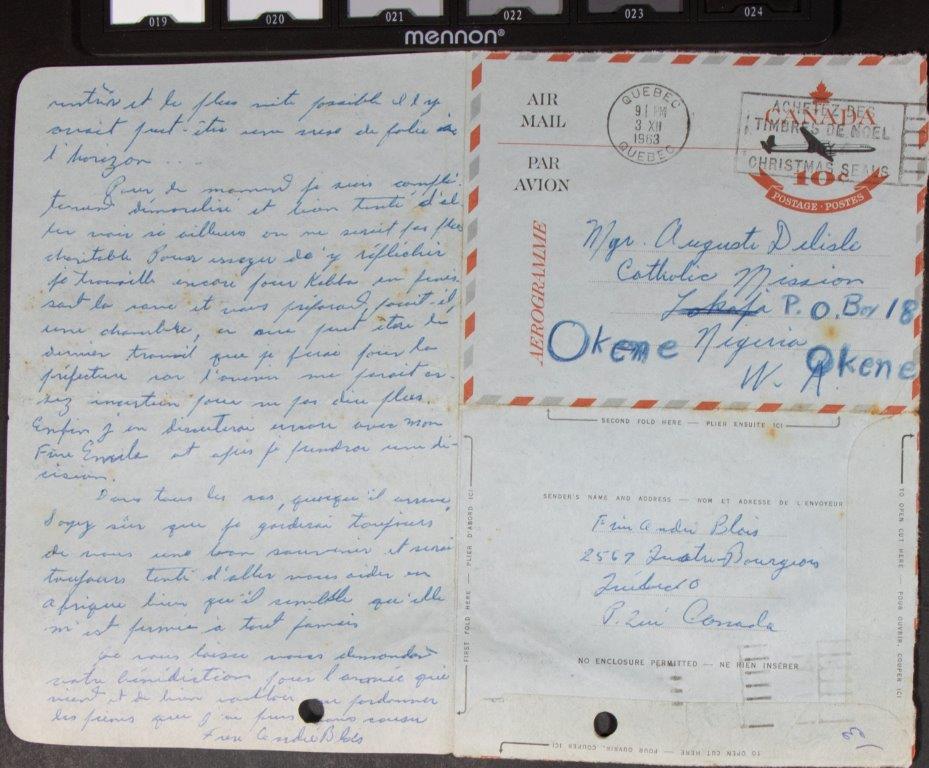 019 020 021 022 023 024
mennon®
et le plus vite possible il y
aurait peut-être une de folie à
l'horizon ....
Pour le moment je suis complè-
tement démoralisé et bien tenté d'al-
ler voir si ailleurs on ne serait pas plus
charitable Pour essayer de y réfléchir
je travaille encore pour Kabba en finis-
sant la cave et vous préparant
une chambre, ce sera peut être le
dernier travail que je ferai pour la
préfecture car l'avenir me parait as-
sez incertain pour ne pas dire plus.
Enfin j'en discuterai encore avec mon
Frère Emile et après je prendrai une dé-
cision.
Dans tous les cas, quoiqu'il arrive
Soyez sûr que je garderai toujours
de vous une bon souvenir et serai
toujours tenté d'aller vous aider en
Afrique bien qu'il semble qu'elle
m'est fermée à tout jamais
Je vous laisse vous demandant
votre bénédiction pour l'année qui
vient et de bien vouloir me pardonner
les peines que j'ai pu vous causer
Frère André Blois
AIR
MAIL
PAR
AVION
AEROGRAMME
QUEBEC
9 PM
3 XII
1963
QUEBEC
ACHETEZ DES
TIMBRES DE NOEL
CHRISTMAS SEALS
CANADA
10c
POSTAGE · POSTES
Mgr. Auguste Delisle
Catholic Mission
Lokoja P. O. Box 18
Okene Nigeria Okene
W. A.
SECOND FOLD HERE — PLIER ENSUITE ICI
FIRST FOLD HERE — PLIER D'ABORD ICI
TO OPEN CUT HERE — POUR OUVRIR, COUPER ICI
SENDER'S NAME AND ADDRESS — NOM ET ADRESSE DE L'ENVOYEUR
Frère André Blois
2567 Quatre-Bourgeois
Québec 10
P. Qué Canada
NO ENCLOSURE PERMITTED — NE RIEN INSÉRER
TO OPEN CUT HERE — POUR OUVRIR, COUPER ICI